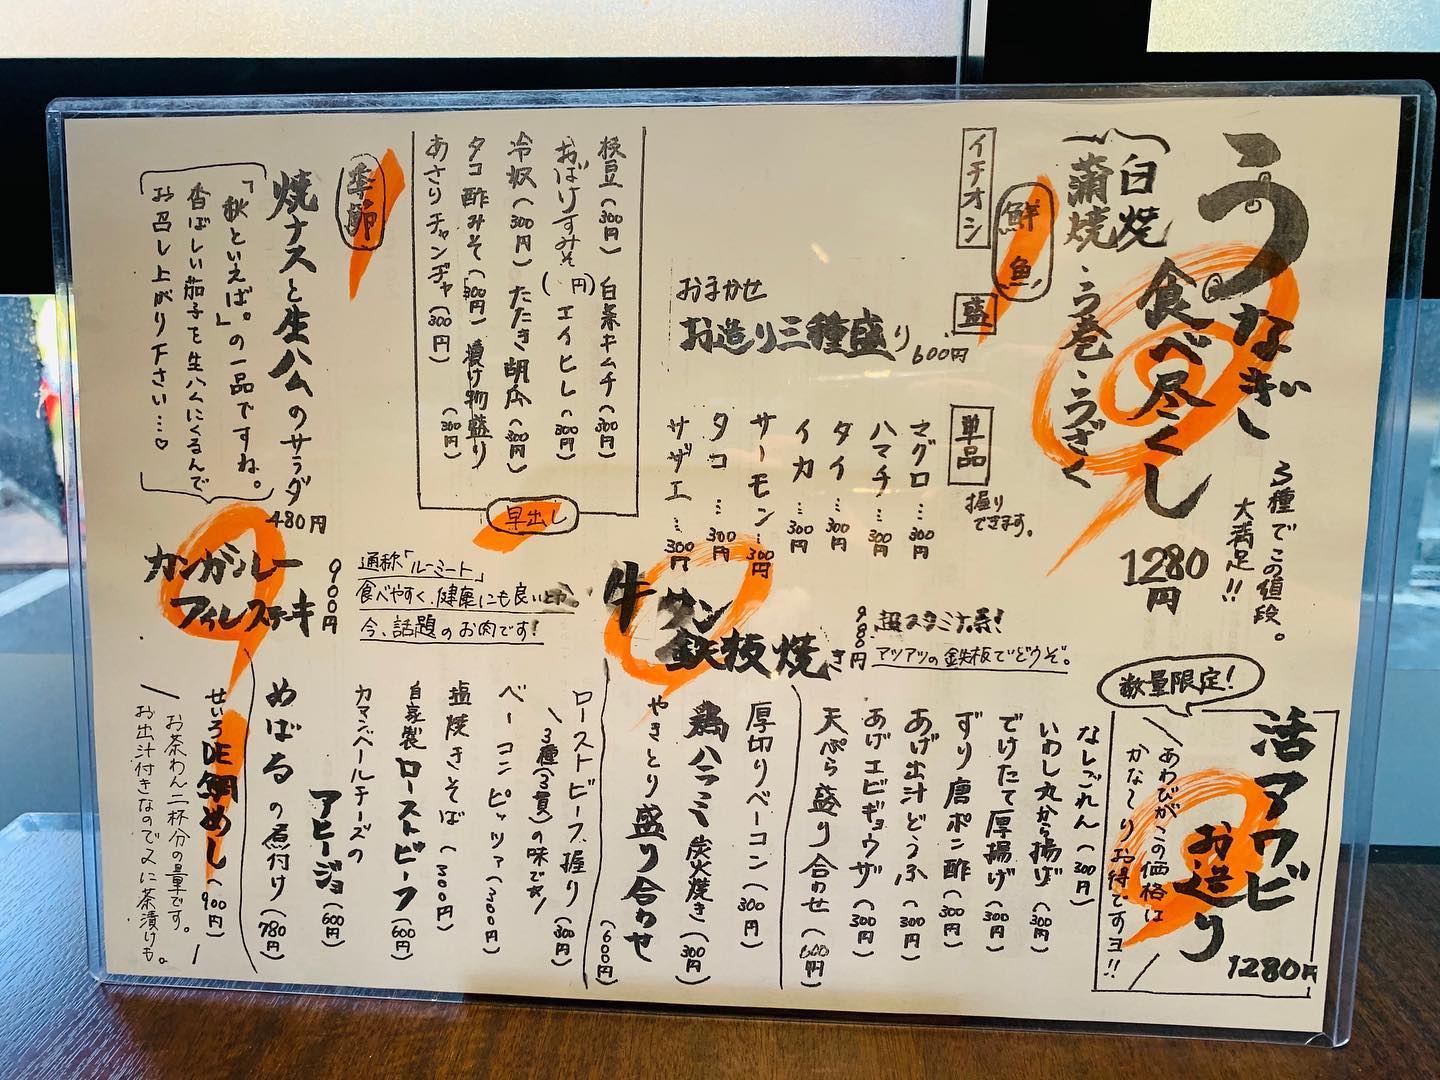 うなぎ
食べ尽くし
白焼
蒲焼・う巻・うざく
3種でこの値段。
大満足!!
1280円
イチオシ
鮮魚
盛
おまかせ
お造り三種盛り 600円
単品
握りできます。
マグロ…300円
ハマチ…300円
タイ…300円
イカ…300円
サーモン…300円
タコ…300円
サザエ…300円
枝豆(300円) 白菜キムチ(300円)
おばけすみそ(円) エイヒレ(300円)
冷奴(300円) たたき胡瓜(300円)
タコ酢みそ(300円) 漬け物盛り(300円)
あさりチャンヂャ(300円)
早出し
季節
焼ナスと生ハムのサラダ 480円
「秋といえば。」の一品ですね。
香ばしい茄子を生ハムにくるんで
お召し上がり下さい…♡
数量限定!
活アワビ
お造り
1280円
あわびがこの価格は
かな〜りお得ですヨ!!
牛タン
鉄板焼き 980円
超スタミナ系!
アツアツの鉄板でどうぞ。
カンガルー
フィレステキ 900円
通称「ルーミート」
食べやすく、健康にも良いとか。
今、話題のお肉です!
なしごれん(300円)
いわし丸から揚げ(300円)
でけたて厚揚げ(300円)
ずり唐ポン酢(300円)
あげ出汁どうふ(300円)
あげエビギョウザ(300円)
天ぷら盛り合わせ(600円)
厚切りベーコン(300円)
鶏ハラミ炭火焼き(300円)
やきとり盛り合わせ(600円)
ローストビーフ握り(300円)
\3種(3貫)の味です/
ベーコンピッツァ(300円)
塩焼きそば(300円)
自家製ローストビーフ(600円)
カマンベールチーズの
アヒージョ(600円)
めばるの煮付け(780円)
せいろDE鯛めし(900円)
お茶わん二杯分の量です。
お出汁付きなので〆に茶漬けも。